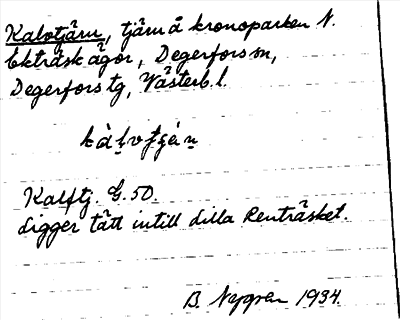 Kalvtjärn, tjärn å kronoparken N.
Ekträsk ägor, Degerfors sn,
Degerfors tg, Västerb. l.
Kalftj. G. 50.
Ligger tätt intill Lilla Renträsket.
B. Nygren 1934.